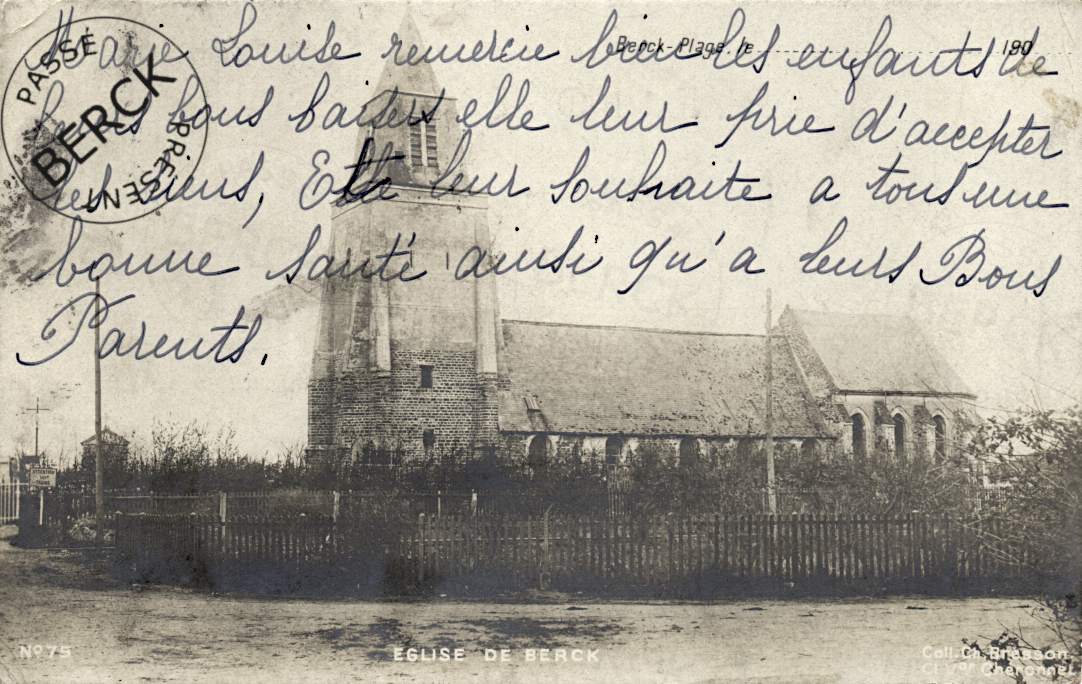 Marie Louise remercie bien les enfants de
Berck-Plage, le 190
leurs bons baisers elle leur prie d'accepter
les siens, Elle leur souhaite a tous une
bonne santé ainsi qu'a leurs Bons
Parents.
PASSÉ
BERCK
PRÉSENT
N° 75
EGLISE DE BERCK
Coll. Ch. Bresson
Cheronnet